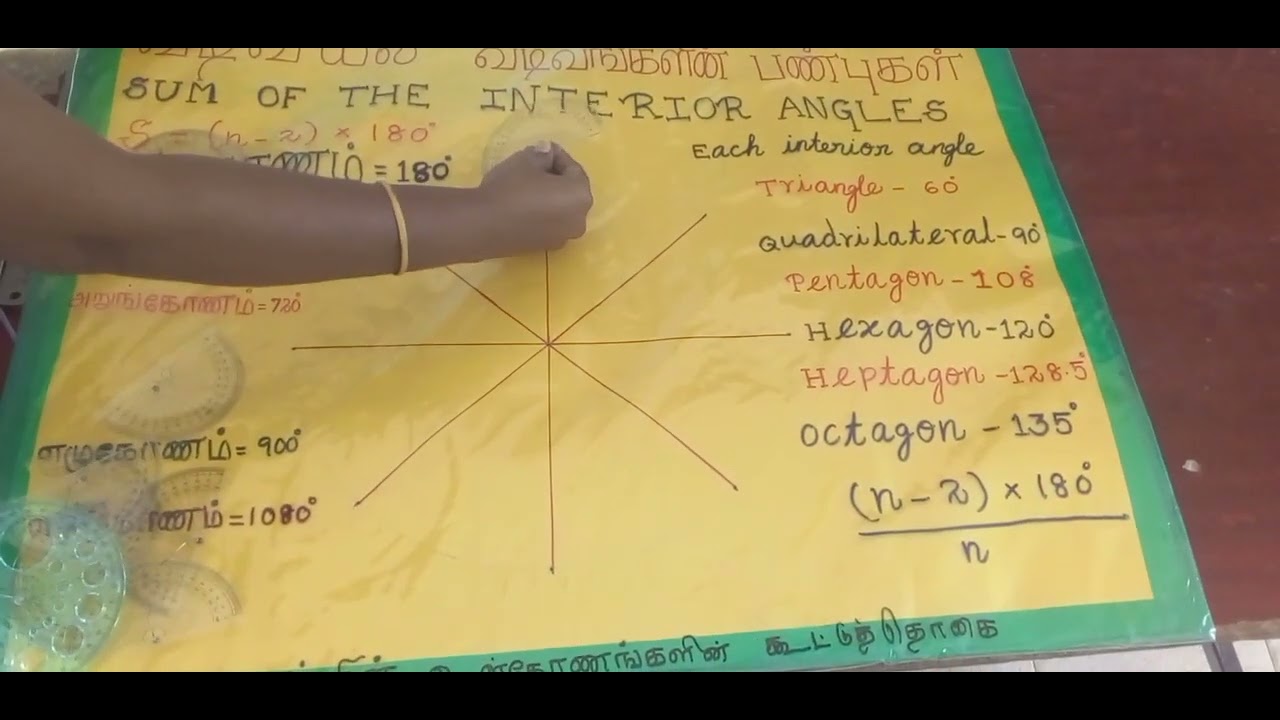 வடிவங்களின் பண்புகள்
SUM OF THE INTERIOR ANGLES
S = (n-2) × 180°
= 180°
அறுங்கோணம் = 720°
எழுகோணம் = 900°
= 1080°
Each interior angle
Triangle - 60°
Quadrilateral - 90°
Pentagon - 108°
Hexagon - 120°
Heptagon - 128.5°
Octagon - 135°
(n-2) × 180°
n
உள்கோணங்களின் கூட்டுத்தொகை